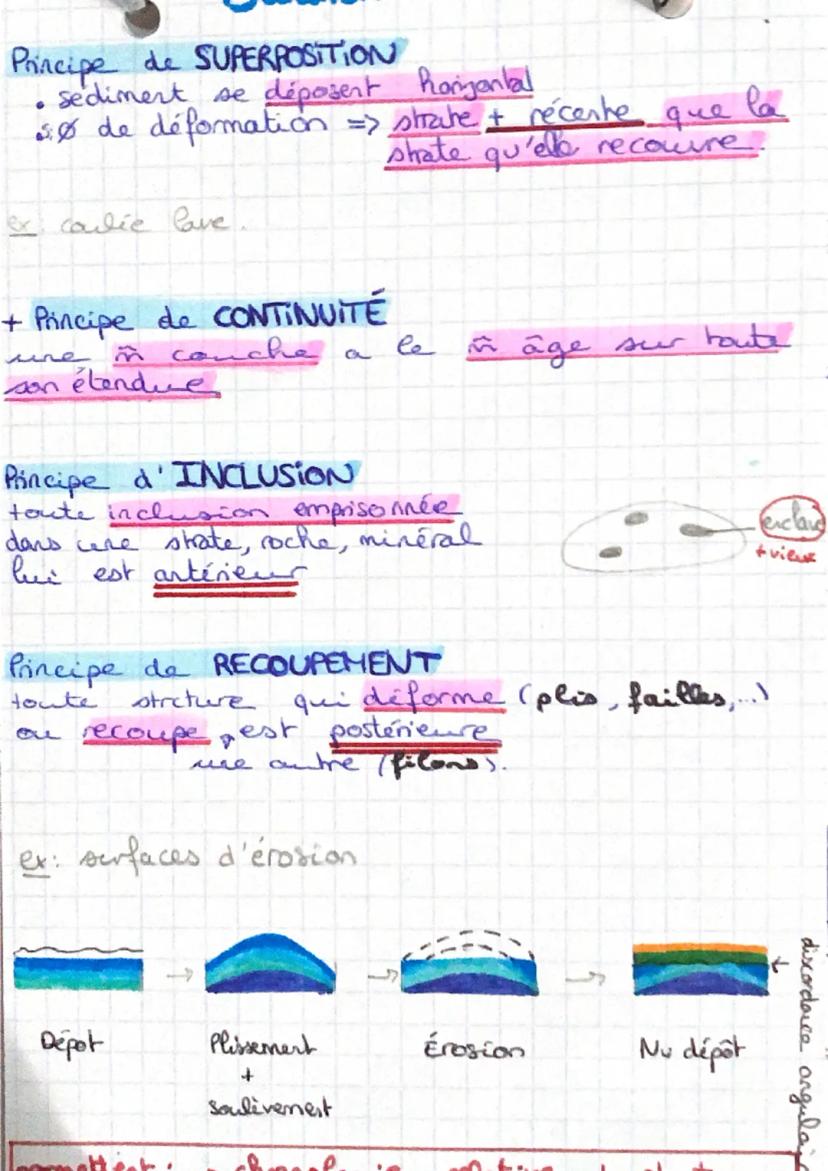 Principe de SUPERPOSITION
• sédiment se déposent horizontal
si Ø de déformation => strate + récente que la
strate qu'elle recouvre.
ex: coulée lave.
+ Principe de CONTINUITÉ
une m̂ couche a le m̂ âge sur toute
son étendue
Principe d'INCLUSION
toute inclusion emprisonnée
dans une strate, roche, minéral
lui est antérieur
enclave
+ vieux
Principe de RECOUPEMENT
toute structure qui déforme (plis, failles,...)
ou recoupe, est postérieure
une autre (filons).
ex: surfaces d'érosion
Dépot
Plissement
+
soulèvement
Érosion
Nv dépôt
discordance angulai